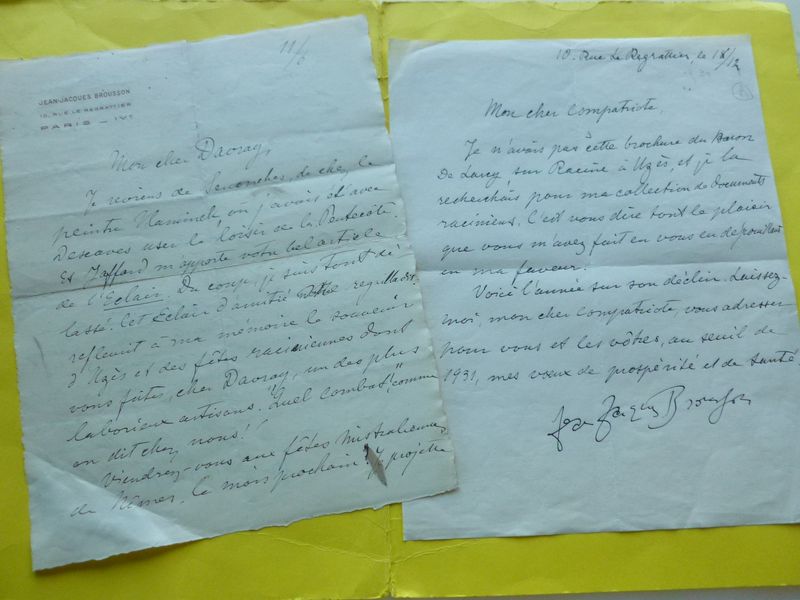 11/6
JEAN-JACQUES BROUSSON
10, RUE LE REGRATTIER
PARIS - IVᵉ
Mon cher Davray,
Je reviens de Senonches, de chez le
peintre Vlaminck, où j'avais été avec
Descaves user le loisir de la Pentecôte.
Et Jaffard m'apporte votre bel article
de l'Eclair. Du coup, je suis tout dé-
lassé. Cet Eclair d'amitié
refleurit à ma mémoire le souvenir
d'Uzès et des fêtes raciniennes dont
vous fûtes, cher Davray, un des plus
laborieux artisans. "Quel combat!" comme
on dit chez nous!
Viendrez-vous aux fêtes mistraliennes
de Nîmes, le mois prochain? Je projette
10. Rue Le Regrattier, le 18/12
Mon cher compatriote,
Je n'avais pas cette brochure du Baron
De Larcy sur Racine à Uzès, et je la
recherchais pour ma collection de documents
raciniens. C'est vous dire tout le plaisir
que vous m'avez fait en vous en dépouillant
en ma faveur.
Voici l'année sur son déclin. Laissez-
moi, mon cher compatriote, vous adresser
pour vous et les vôtres, au seuil de
1931, mes vœux de prospérité et de santé.
Jean-Jacques Brousson